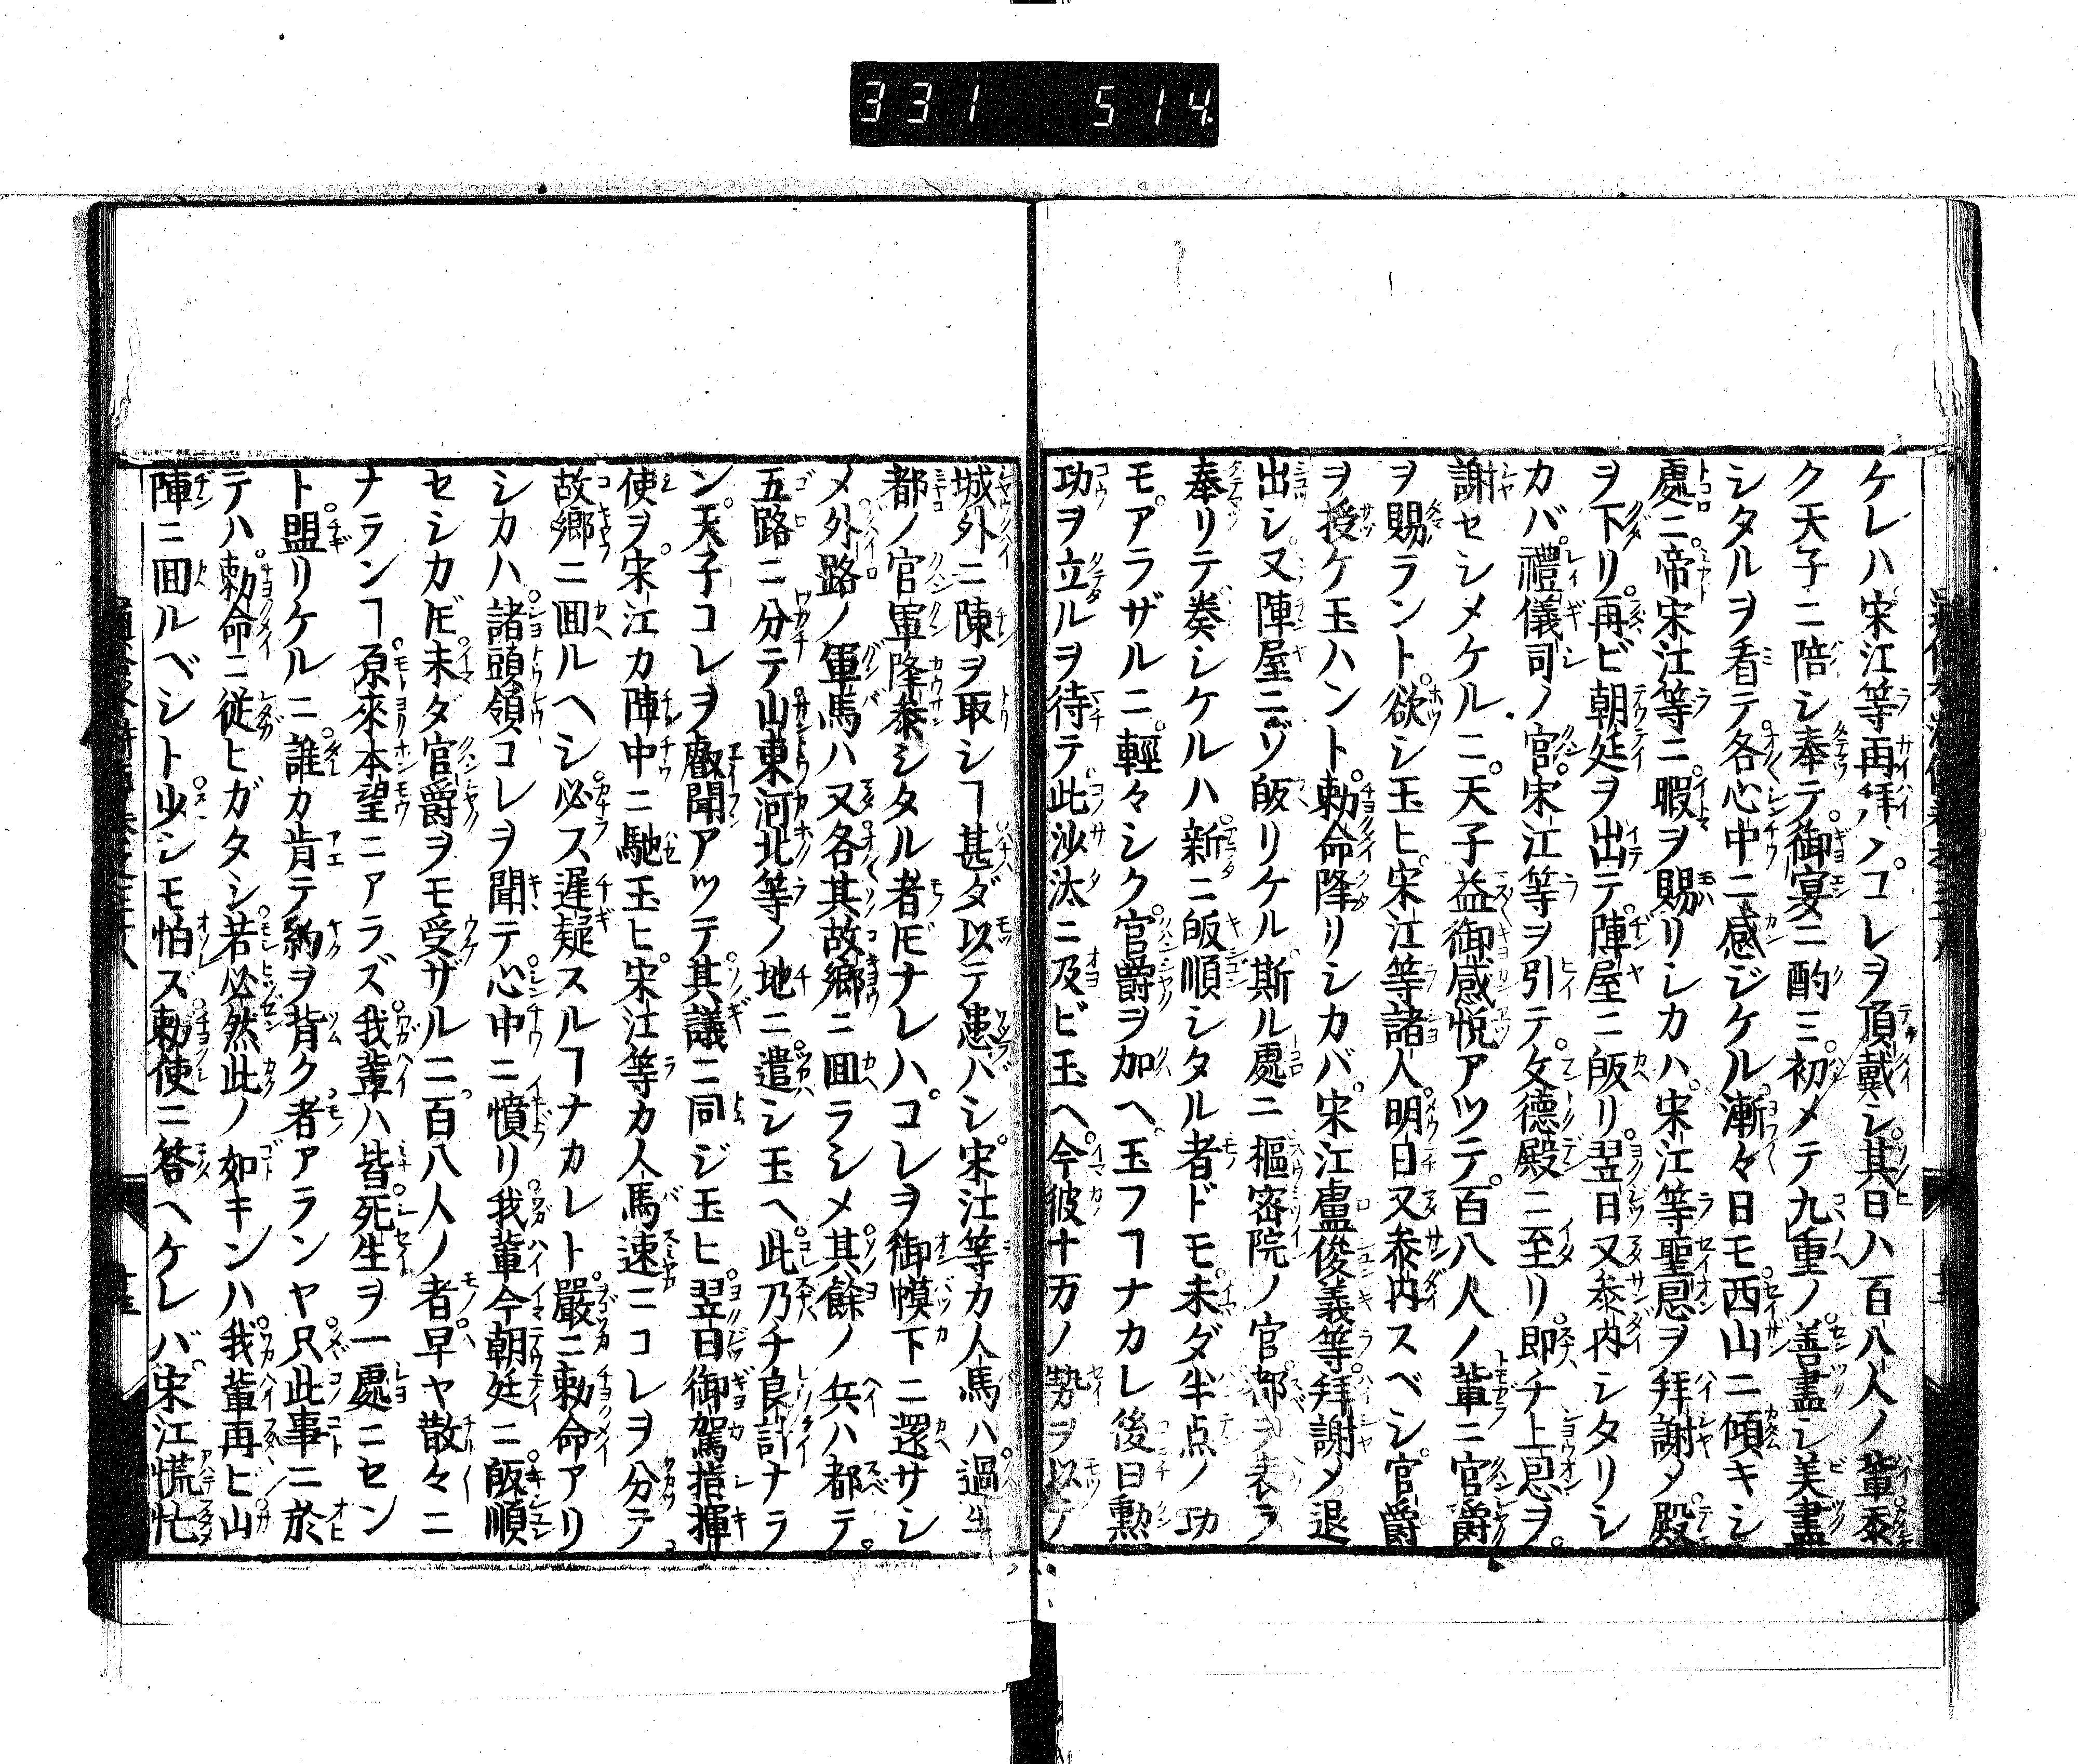 331 514
ケレハ宋江等再拜ノコレヲ頂戴シ其日ハ百八人ノ輩忝
ク天子ニ陪シ奉テ御宴ニ酌ミ初メテ九重ノ善盡シ美盡
シタルヲ看テ各心中ニ感ジケル漸々日モ西山ニ傾キシ
處ニ帝宋江等ニ暇ヲ賜リシカハ宋江等聖恩ヲ拜謝メ殿
ヲ下リ再ビ朝廷ヲ出テ陣屋ニ皈リ翌日又叅内シタリシ
カバ禮儀司ノ官宋江等ヲ引テ文德殿ニ至リ即チ上恩ヲ
謝セシメケルニ天子益御感悅アツテ百八人ノ輩ニ官爵
ヲ賜ラント欲シ玉ヒ宋江等諸人明日又叅内スベシ官爵
ヲ授ケ玉ハント勅命降リシカバ宋江盧俊義等拜謝メ退
出シ又陣屋ニゾ皈リケル斯ル處ニ樞密院ノ官都ヲ表ヲ
奉リテ奏シケルハ新ニ皈順シタル者ドモ未ダ半点ノ功
モアラザルニ輕々シク官爵ヲ加ヘ玉フヿナカレ後日勲
功ヲ立ルヲ待テ此沙汰ニ及ビ玉ヘ今彼十万ノ勢ヲ以テ
城外ニ陳ヲ取シヿ甚ダ以テ患バシ宋江等カ人馬ハ過半
都ノ官軍降叅シタル者𪜈ナレハコレヲ御幕下ニ還サシ
メ外路ノ軍馬ハ又各其故鄉ニ囬ラシメ其餘ノ兵ハ都テ
五路ニ分テ山東河北等ノ地ニ遣シ玉ヘ此乃チ良計ナラ
ン天子コレヲ叡聞アツテ其議ニ同ジ玉ヒ翌日御駕指揮
使ヲ宋江カ陣中ニ馳玉ヒ宋江等カ人馬速ニコレヲ分テ
故鄉ニ囬ルヘシ必ス遲疑スルヿナカレト嚴ニ勅命アリ
シカハ諸頭領コレヲ聞テ心中ニ憤リ我輩今朝廷ニ皈順
セシカ𪜈未ダ官爵ヲモ受ザルニ百八人ノ者早ヤ散々ニ
ナランヿ原來本望ニアラズ我輩ハ皆死生ヲ一處ニセン
ト盟リケルニ誰カ肯テ約ヲ背ク者アランヤ只此事ニ於
テハ勅命ニ從ヒガタシ若必然此ノ如キンハ我輩再ビ山
陣ニ囬ルベシト少シモ怕ズ勅使ニ答ヘケレバ宋江慌忙